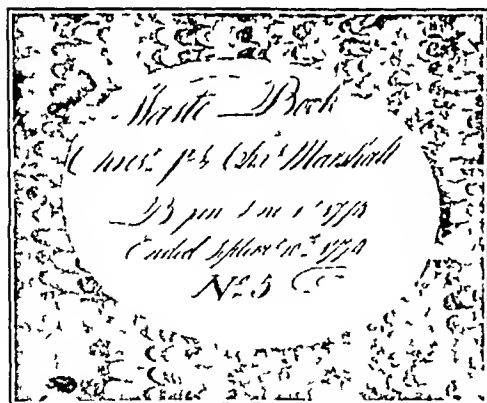 Waste Book
Chrisr. Jr & Chas Marshall
Began 1773
Ended Septemr 10th 1774
No. 5